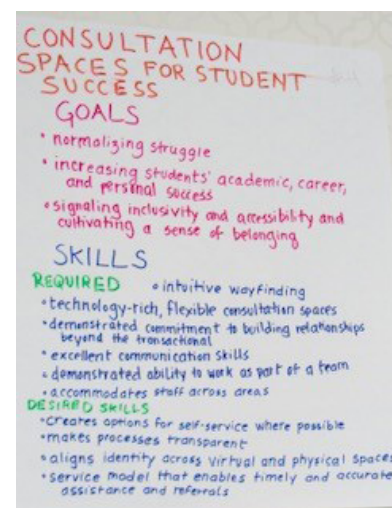 CONSULTATION
SPACES FOR STUDENT
SUCCESS
GOALS
• normalizing struggle
• increasing students' academic, career,
and personal success
• signaling inclusivity and accessibility and
cultivating a sense of belonging
SKILLS
REQUIRED • intuitive wayfinding
• technology-rich, flexible consultation spaces
• demonstrated commitment to building relationships
beyond the transactional
• excellent communication skills
• demonstrated ability to work as part of a team
• accommodates staff across areas
DESIRED SKILLS
• creates options for self-service where possible
• makes processes transparent
• aligns identity across virtual and physical spaces
• service model that enables timely and accurate
assistance and referrals